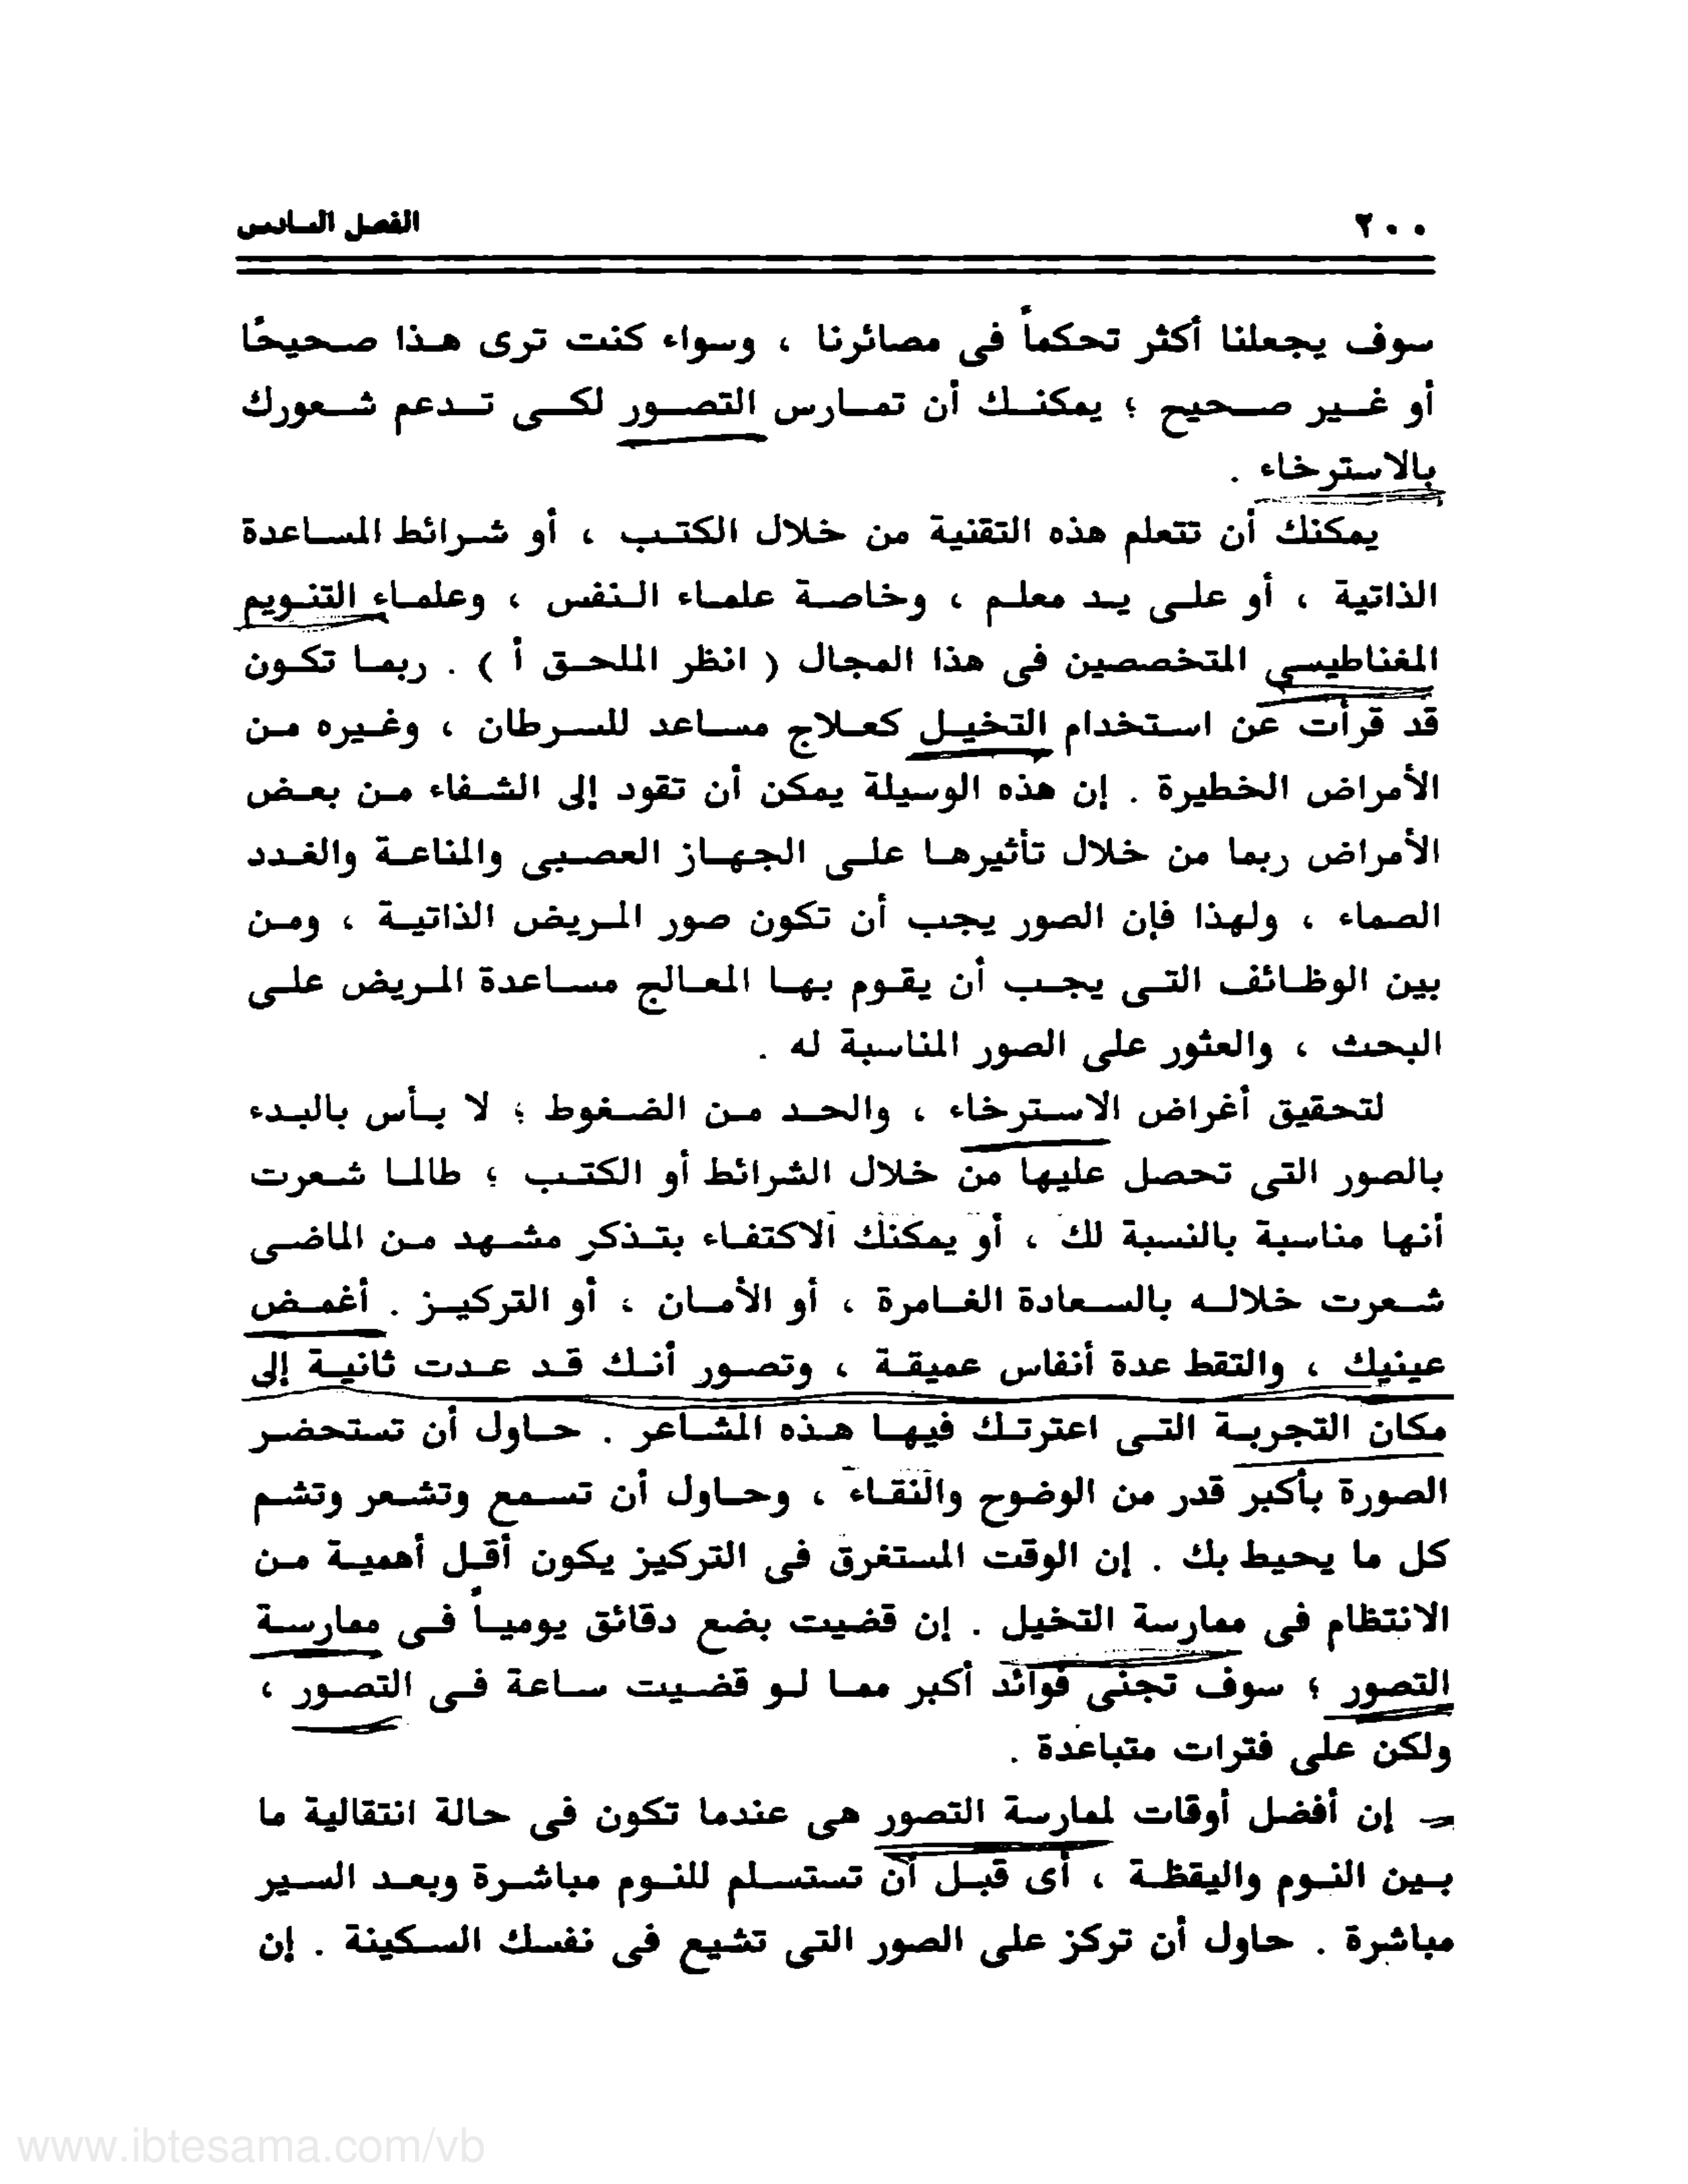 ٢٠٠ الفصل السادس
سوف يجعلنا أكثر تحكماً فى مصائرنا ، وسواء كنت ترى هذا صحيحًا
أو غير صحيح ؛ يمكنك أن تمارس التصور لكى تدعم شعورك
بالاسترخاء .
يمكنك أن تتعلم هذه التقنية من خلال الكتب ، أو شرائط المساعدة
الذاتية ، أو على يد معلم ، وخاصة علماء النفس ، وعلماء التنويم
المغناطيسي المتخصصين فى هذا المجال ( انظر الملحق أ ) . ربما تكون
قد قرأت عن استخدام التخيل كعلاج مساعد للسرطان ، وغيره من
الأمراض الخطيرة . إن هذه الوسيلة يمكن أن تقود إلى الشفاء من بعض
الأمراض ربما من خلال تأثيرها على الجهاز العصبى والمناعة والغدد
الصماء ، ولهذا فإن الصور يجب أن تكون صور المريض الذاتية ، ومن
بين الوظائف التى يجب أن يقوم بها المعالج مساعدة المريض على
البحث ، والعثور على الصور المناسبة له .
لتحقيق أغراض الاسترخاء ، والحد من الضغوط ؛ لا بأس بالبدء
بالصور التى تحصل عليها من خلال الشرائط أو الكتب ؛ طالما شعرت
أنها مناسبة بالنسبة لك ، أو يمكنك الاكتفاء بتذكر مشهد من الماضى
شعرت خلاله بالسعادة الغامرة ، أو الأمان ، أو التركيز . أغمض
عينيك ، والتقط عدة أنفاس عميقة ، وتصور أنك قد عدت ثانية إلى
مكان التجربة التى اعترتك فيها هذه المشاعر . حاول أن تستحضر
الصورة بأكبر قدر من الوضوح والنقاء ، وحاول أن تسمع وتشعر وتشم
كل ما يحيط بك . إن الوقت المستغرق فى التركيز يكون أقل أهمية من
الانتظام فى ممارسة التخيل . إن قضيت بضع دقائق يومياً فى ممارسة
التصور ؛ سوف تجنى فوائد أكبر مما لو قضيت ساعة فى التصور ،
ولكن على فترات متباعدة .
إن أفضل أوقات لممارسة التصور هى عندما تكون فى حالة انتقالية ما
بين النوم واليقظة ، أى قبل أن تستسلم للنوم مباشرة وبعد السير
مباشرة . حاول أن تركز على الصور التى تشيع فى نفسك السكينة . إن
www.ibtesama.com/vb